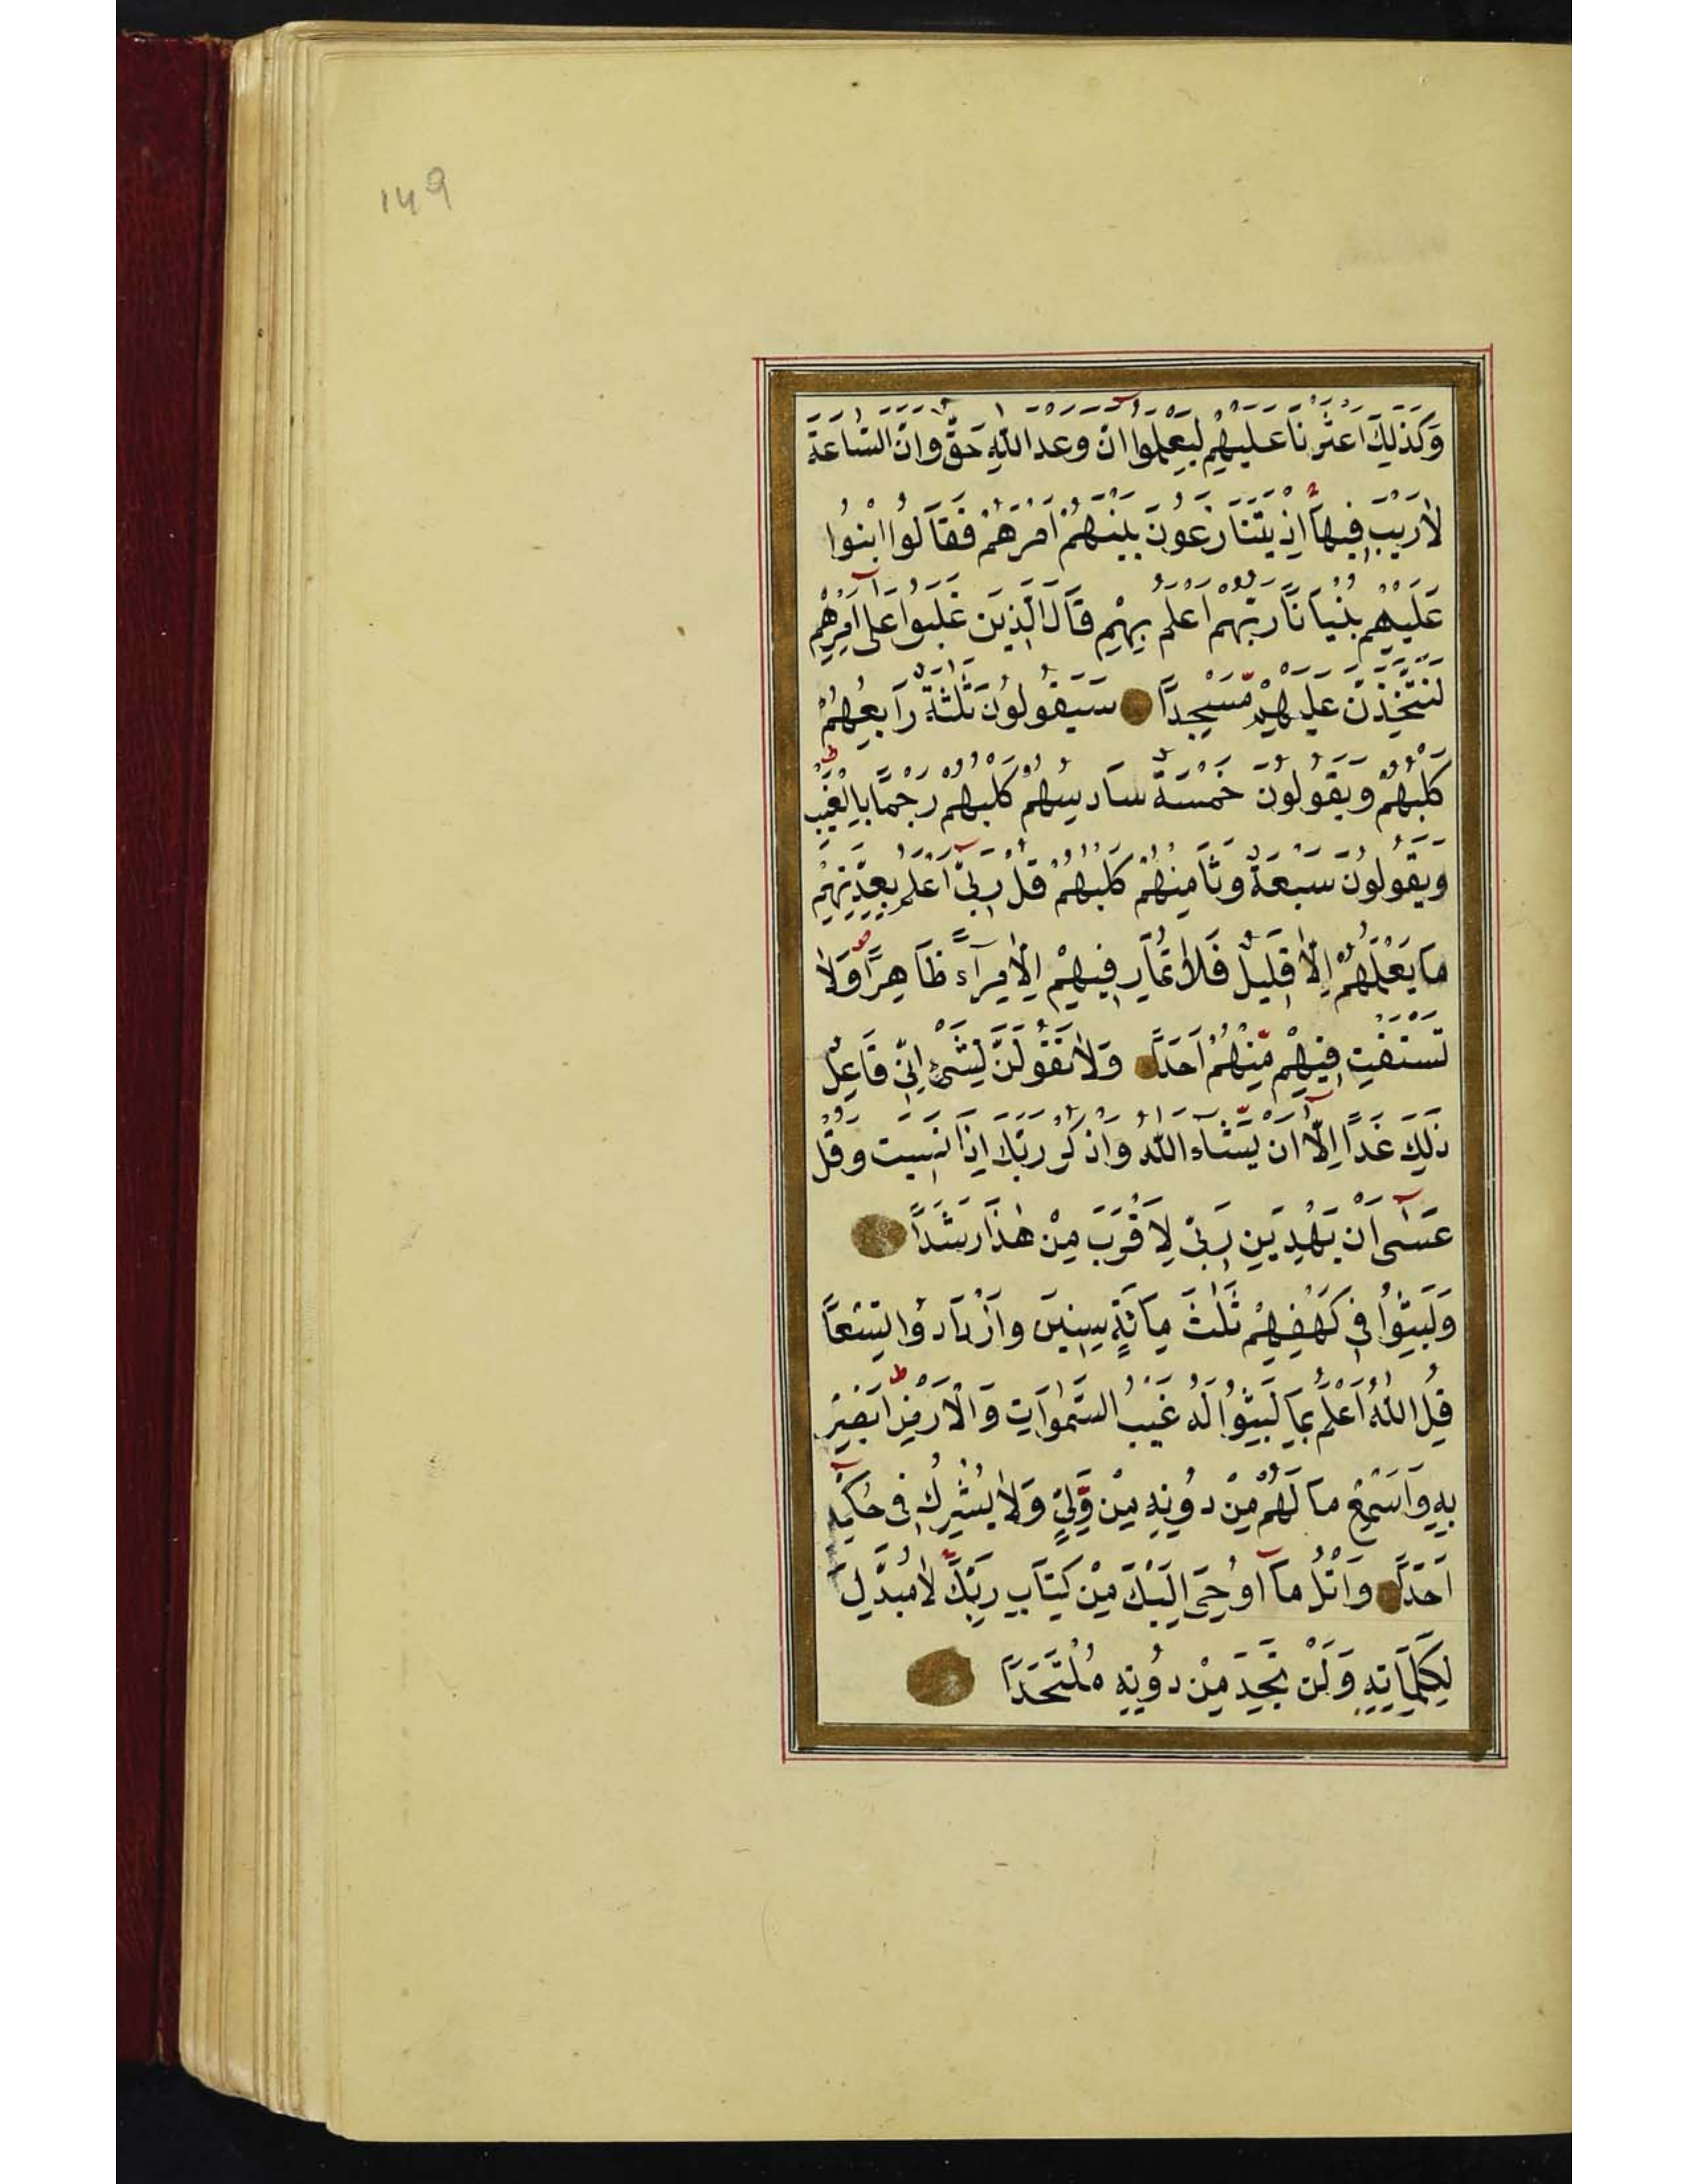 149
وَكَذٰلِكَ اَعْثَرْنَا عَلَيْهِمْ لِيَعْلَمُوا اَنَّ وَعْدَ اللّٰهِ حَقٌّ وَاَنَّ السَّاعَةَ
لَا رَيْبَ فِيهَا اِذْ يَتَنَازَعُونَ بَيْنَهُمْ اَمْرَهُمْ فَقَالُوا ابْنُوا
عَلَيْهِمْ بُنْيَانًا رَبُّهُمْ اَعْلَمُ بِهِمْ قَالَ الَّذِينَ غَلَبُوا عَلٰى اَمْرِهِمْ
لَنَتَّخِذَنَّ عَلَيْهِمْ مَسْجِدًا سَيَقُولُونَ ثَلٰثَةٌ رَابِعُهُمْ
كَلْبُهُمْ وَيَقُولُونَ خَمْسَةٌ سَادِسُهُمْ كَلْبُهُمْ رَجْمًا بِالْغَيْبِ ط
وَيَقُولُونَ سَبْعَةٌ وَثَامِنُهُمْ كَلْبُهُمْ قُلْ رَبِّىٓ اَعْلَمُ بِعِدَّتِهِمْ
مَا يَعْلَمُهُمْ اِلَّا قَلِيلٌ فَلَا تُمَارِ فِيهِمْ اِلَّا مِرَآءً ظَاهِرًا وَلَا
تَسْتَفْتِ فِيهِمْ مِّنْهُمْ اَحَدًا وَلَا تَقُولَنَّ لِشَىْءٍ اِنِّى فَاعِلٌ
ذٰلِكَ غَدًا اِلَّآ اَنْ يَّشَآءَ اللّٰهُ وَاذْكُرْ رَبَّكَ اِذَا نَسِيتَ وَقُلْ
عَسٰٓى اَنْ يَهْدِيَنِ رَبِّى لِاَقْرَبَ مِنْ هٰذَا رَشَدًا
وَلَبِثُوا فِى كَهْفِهِمْ ثَلٰثَ مِائَةٍ سِنِينَ وَازْدَادُوا تِسْعًا
قُلِ اللّٰهُ اَعْلَمُ بِمَا لَبِثُوا لَهُ غَيْبُ السَّمٰوَاتِ وَالْاَرْضِ ط اَبْصِرْ
بِهِ وَاَسْمِعْ مَا لَهُمْ مِنْ دُونِهِ مِنْ وَّلِىٍّ وَلَا يُشْرِكُ فِى حُكْمِهِ
اَحَدًا وَاتْلُ مَآ اُوحِىَ اِلَيْكَ مِنْ كِتَابِ رَبِّكَ لَا مُبَدِّلَ
لِكَلِمَاتِهِ وَلَنْ تَجِدَ مِنْ دُونِهِ مُلْتَحَدًا